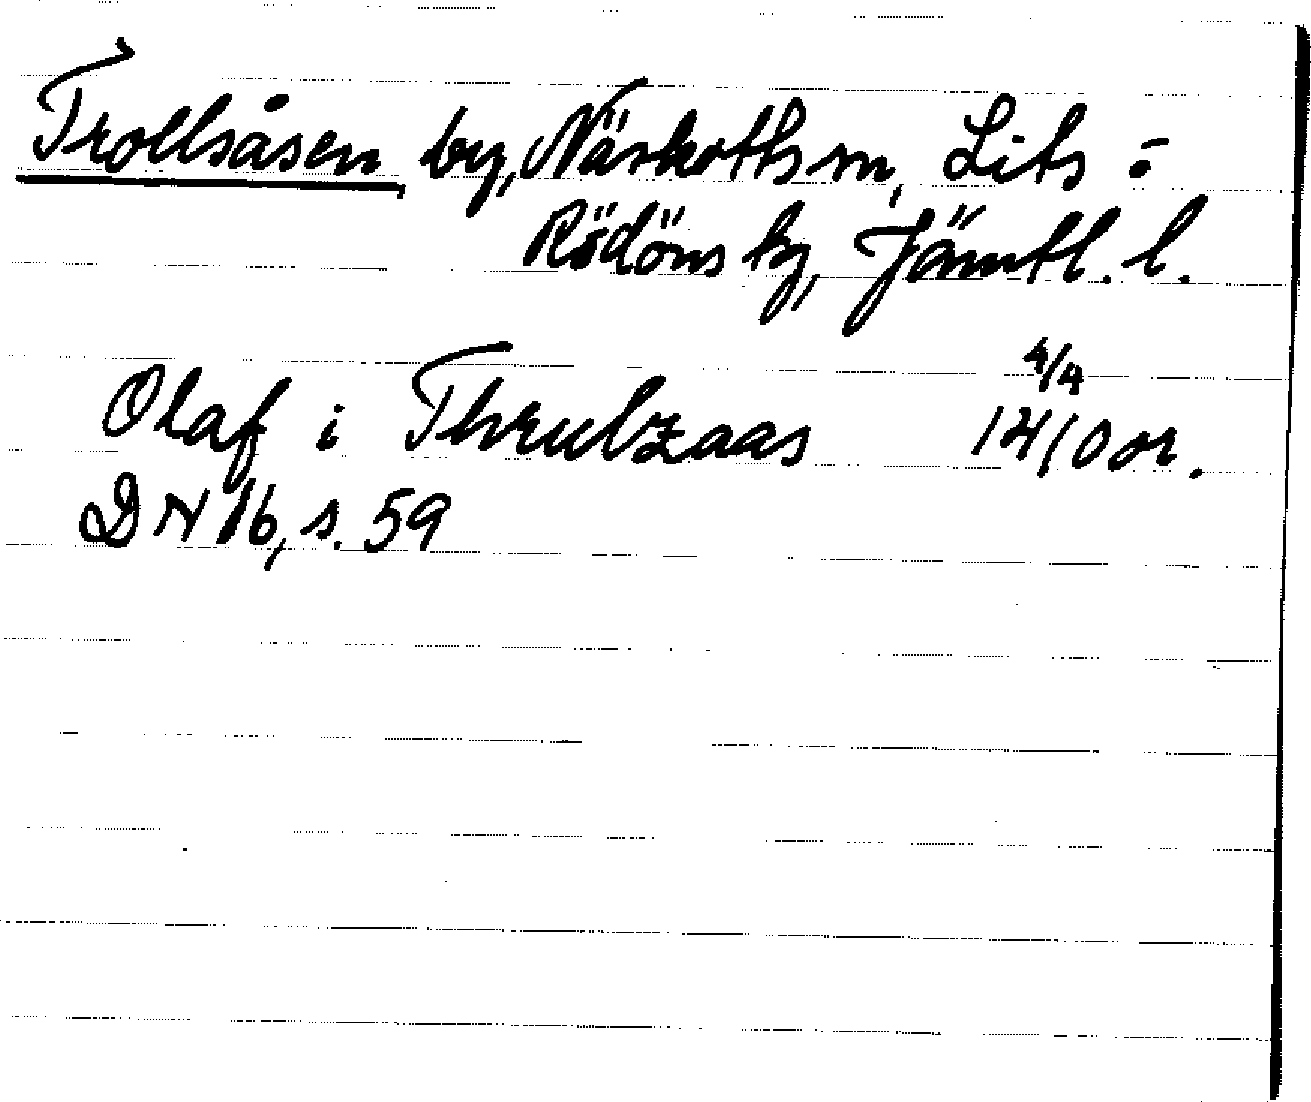 Trollsåsen by, Näskotts sn, Lits o
Rödöns tg, Jämtl. l.
4/4
Olaf i Thrulzaas 1410 or.
DN 16, s. 59